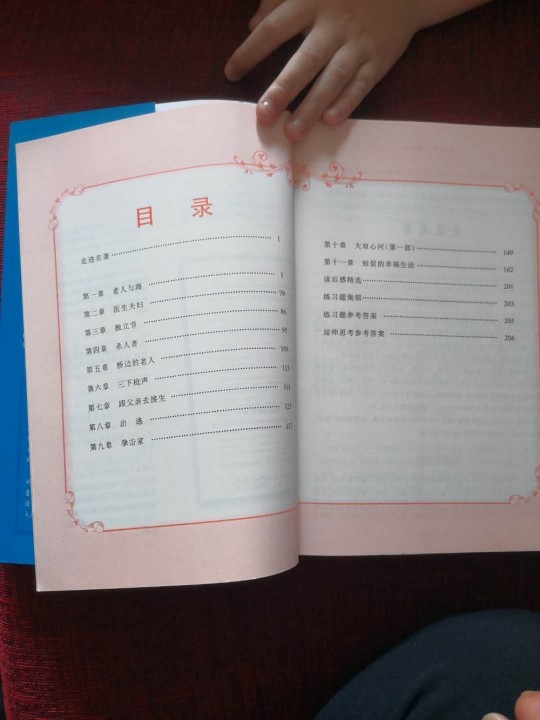 目 录
走进名著 1
第一章 老人与海 1
第二章 医生夫妇 79
第三章 独立节 86
第四章 杀人者 95
第五章 桥边的老人 109
第六章 三下枪声 113
第七章 跟父亲去接生
第八章 出 逃 123
第九章 拳击家 137
第十章 大双心河(第一部) 149
第十一章 短促的幸福生活 162
读后感精选 201
练习题集锦 203
练习题参考答案 205
延伸思考参考答案 206